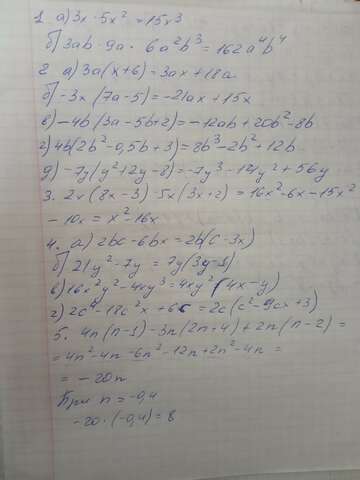 1. а) 3x · 5x² = 15x³
б) 3ab · 9a · 6a²b³ = 162a⁴b⁴
2. а) 3a(x+6) = 3ax + 18a
б) -3x(7a-5) = -21ax + 15x
в) -4b(3a-5b+2) = -12ab + 20b² - 8b
г) 4b(2b²-0,5b+3) = 8b³ - 2b² + 12b
д) -7y(y²+2y-8) = -7y³ - 14y² + 56y
3. 2x(8x-3) - 5x(3x+2) = 16x² - 6x - 15x²
- 10x = x² - 16x
4. а) 2bc - 6bx = 2b(c-3x)
б) 21y² - 7y = 7y(3y-1)
в) 16x²y² - 4xy³ = 4xy²(4x-y)
г) 2c⁴ - 18c²x + 6c = 2c(c³-9cx+3)
5. 4n(n-1) - 3n(2n+4) + 2n(n-2) =
= 4n² - 4n - 6n² - 12n + 2n² - 4n =
= -20n
При n = -0,4
-20 · (-0,4) = 8